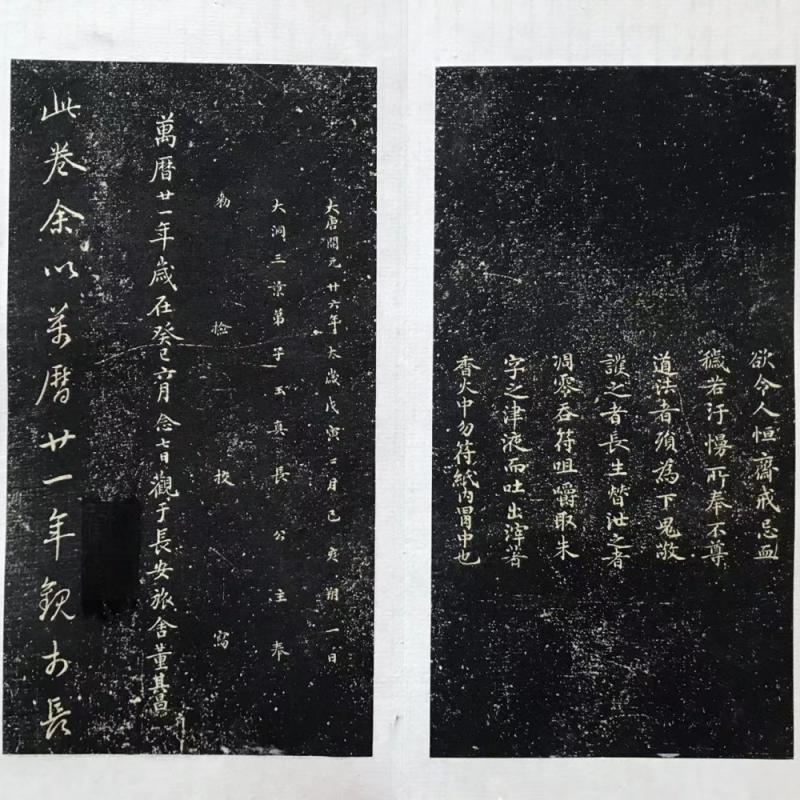 欲令人恒齋戒忌血
穢若汙慢所奉不尊
道法者殞為下鬼敬
護之者長生替泄之者
凋零吞符咀嚼取朱
字之津液而吐出滓著
香火中勿符紙內胃中也
大唐開元廿六年太歲戊寅二月己亥朔一日
大洞三景弟子玉真長公主奉
勑撿挍寫
萬曆廿一年歲在癸巳六月念七日觀于長安旅舍董其昌
此卷余以萬曆廿一年觀於長